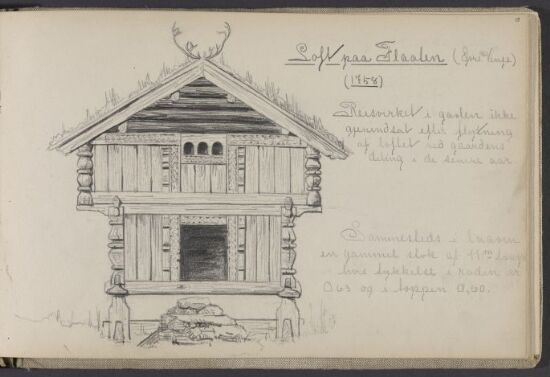 Loft paa Flaaten (Øvre Vinje)
(1758)
Reisvirket i gavlen ikke
gjenindsat efter flytning
af loftet ved gaardens
deling i de senere aar
Sammesteds i laaven
en gammel stok af 11 m længde
hvis tykkelse i roden er
0.63 og i toppen 0,60.